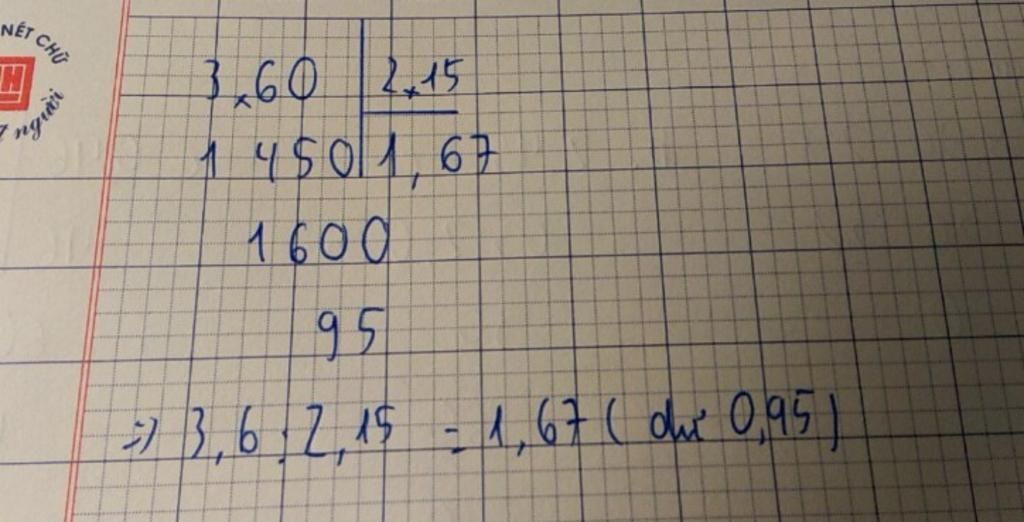 NÉT CHỮ
H
người
3,60 2,15
1 450 1,67
1600
95
=> 3,6 : 2,15 = 1,67 ( dư 0,95)